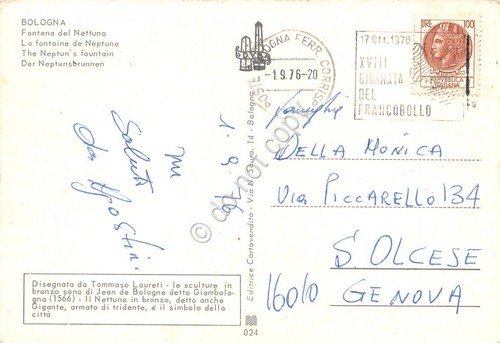 BOLOGNA
Fontana del Nettuno
La fontaine de Neptune
The Neptun's fountain
Der Neptunsbrunnen
POSTE BOLOGNA FERR. CORRISP.
-1.9.76-20
17 OTT. 1976
XVIII
GIORNATA
DEL
FRANCOBOLLO
LIRE 100
1.9.76
Saluti
da
Famiglia
DELLA MONICA
Via PICCARELLO 134
S. OLCESE
16010 GENOVA
Editrice Cartovendita - Via N. Sauro, 14 - Bologna
do not copy
Disegnata da Tommaso Laureti - le sculture in
bronzo sono di Jean de Bologne detto Giambolo-
gna (1566) - Il Nettuno in bronzo, detto anche
Gigante, armato di tridente, è il simbolo della
città
024